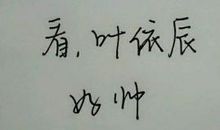 看,叶依辰
好帅